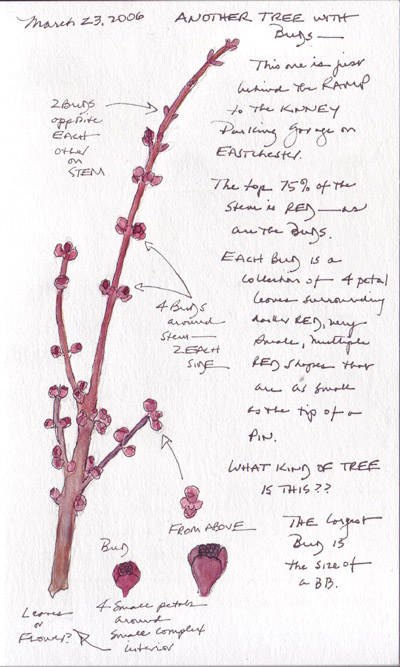 March 23, 2006
ANOTHER TREE WITH
Buds—
This one is just
behind the RAMP
to the KINNEY
Parking Garage on
EASTchester.
2 Buds
opposite
EACH
other
on
STEM
The top 75% of the
stem is RED — as
are the Buds.
EACH Bud is a
collection of 4 petal
leaves surrounding
darker RED, very
small, multiple
RED shapes that
are as small
as the tip of a
PIN.
4 Buds
around
stem—
2 EACH
SIDE
WHAT KIND OF TREE
IS THIS??
FROM ABOVE
THE largest
Bud is
the size of
a BB.
Bud
Leaves
or
Flower?
4 Small petals
around
Small complex
interior